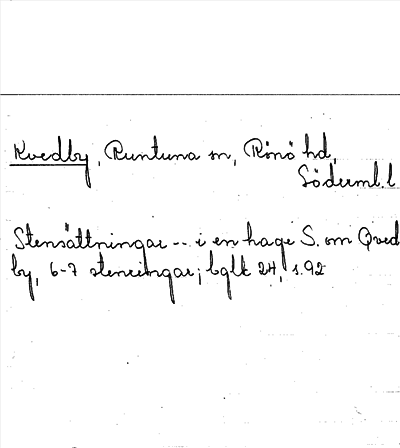 Kvedby, Runtuna sn, Rönö hd,
Söderml. l
Stensättningar -- i en hage S. om Qved
by, 6-7 stenringar; bglt 24, s. 92